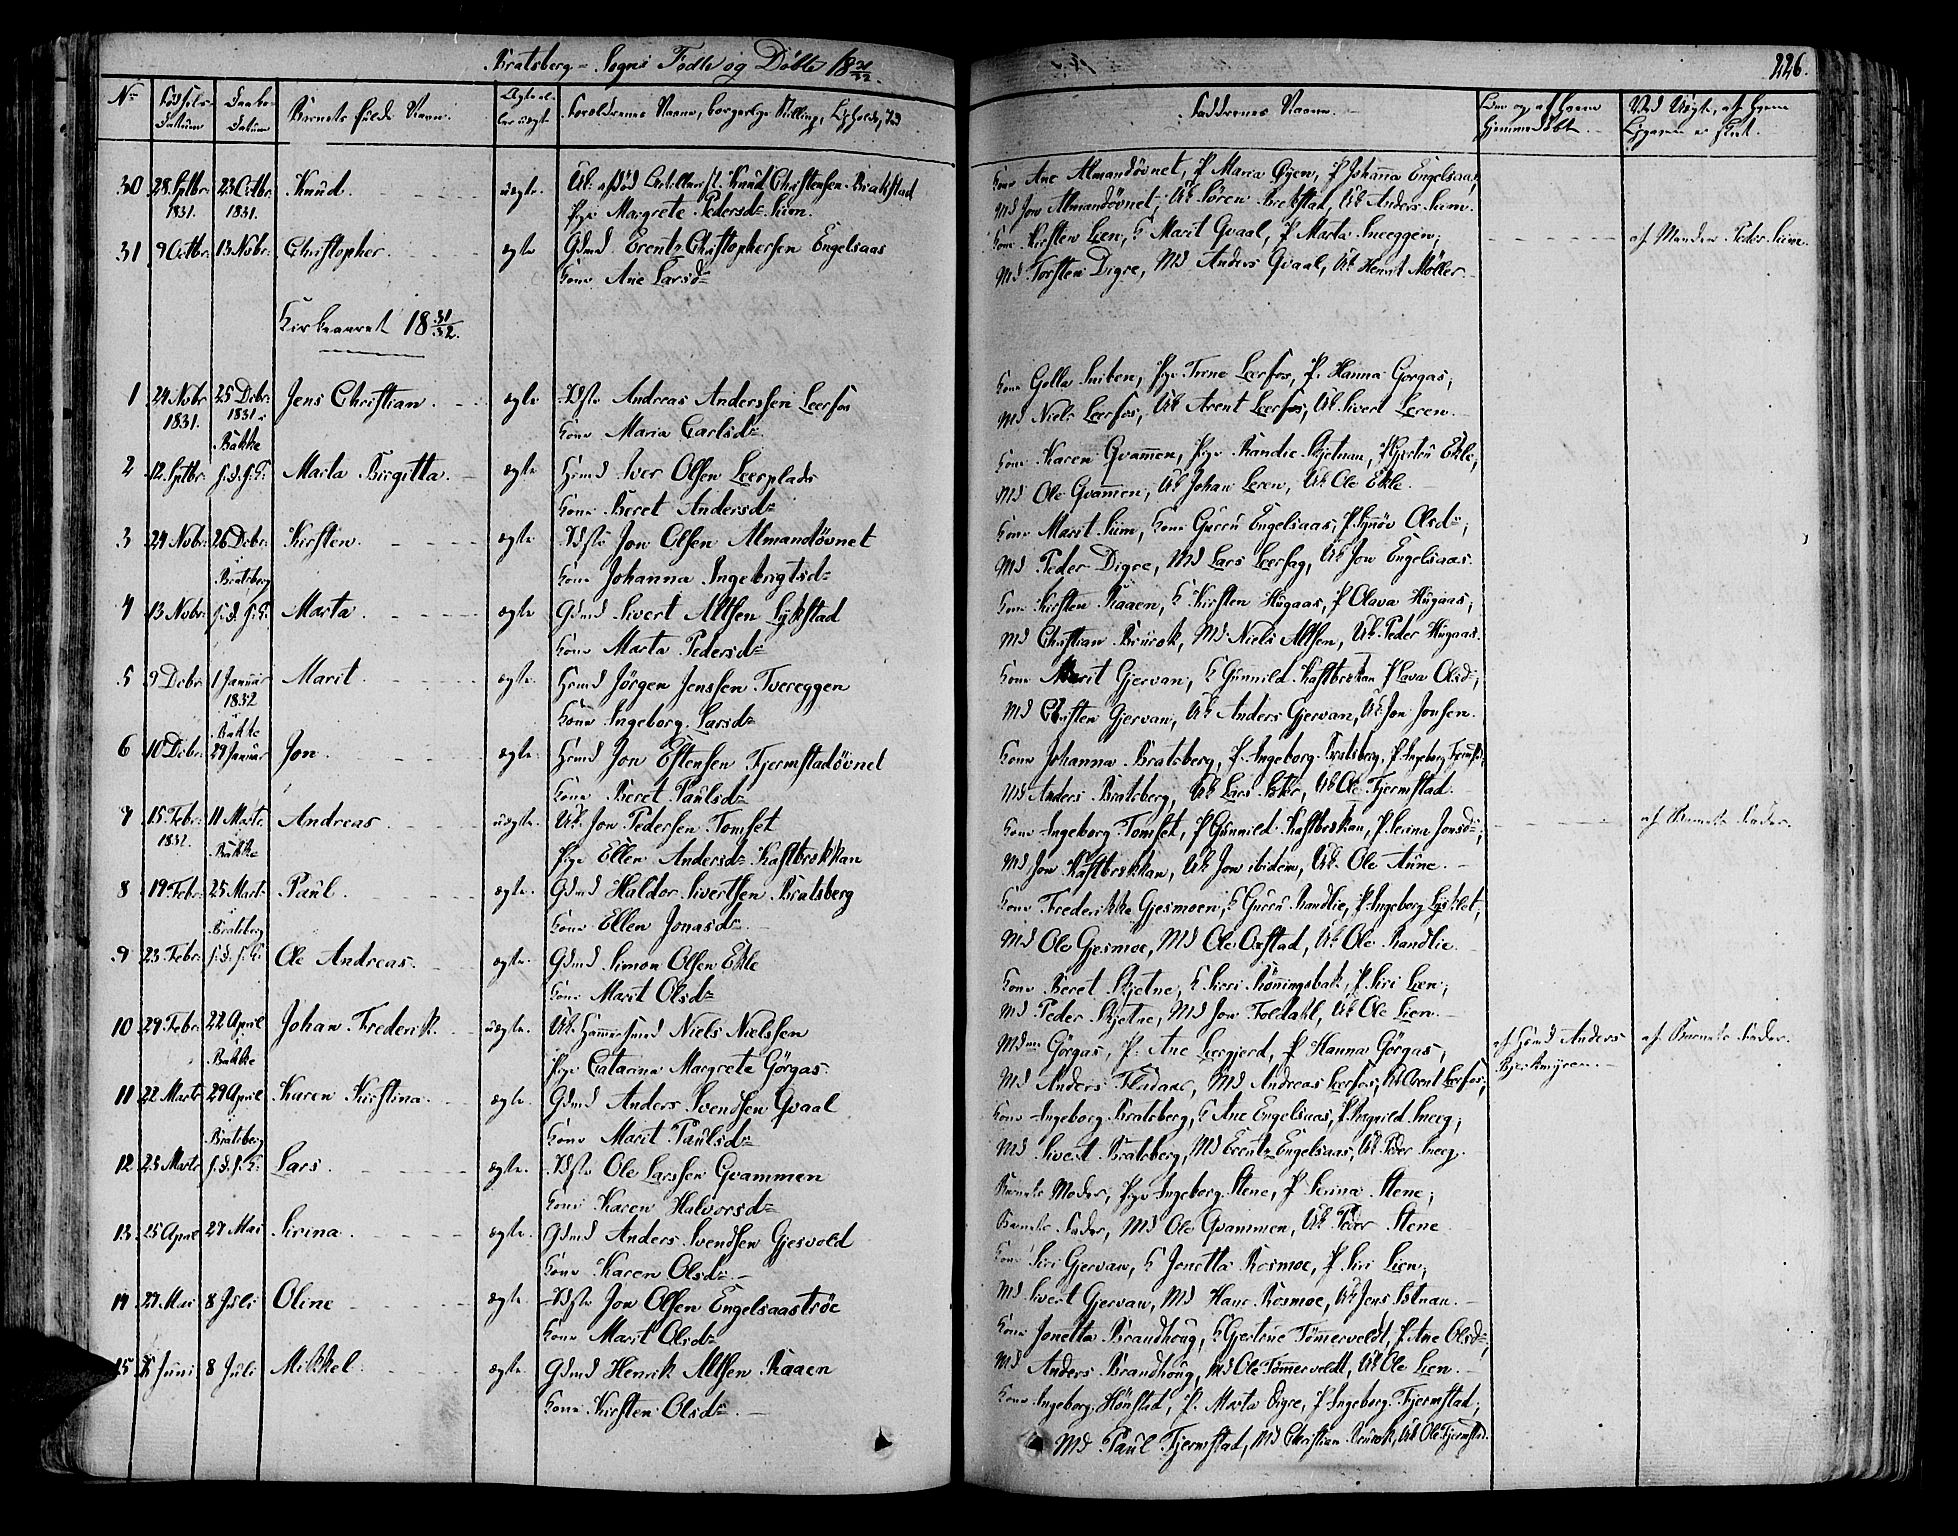 Bratsberg - Sogns Fødte og Døbte 18 31/32.
226.
No
Fødsels Datum
Daabs Datum
Barnets fulde Navn.
Ægte el. uægte
Forældrenes Navne, borgerlige Stilling,
Faddrenes Navne.
30 28 Sptbr. 1831. 23 Octbr. 1831. Knud. uægte.
Knud Christensen Brakstad
Pige Margrete Pedersd. Siim.
Kone Ane Almandövnet, P. Maria Öyen, P. Johanna Engelsaas,
Md Jon Almandövnet, Uk Sören Brekstad, Uk Anders Siim.
31 9 Octbr. 13 Nobr. Christopher. ægte
Gdmd Erentz Christophersen Engelsaas
Kone Ane Larsd.
Kone Kirsten Lien, K Marit Qvaal, P. Marta Sneeggen,
af Manden Peder Siim.
Md Torsten Digre, Md Anders Qvaal, Uk Henrik Möller.
Kirkeaaret 18 31/32.
1 24 Nobr 1831. 25 Debr. 1831. Bakke Jens Christian. ægte
Indste Andreas Anderssen Leerfos
Kone Maria Carlsd.
Kone Golla Sniben, Pige Trine Leerfos, P. Hanna Görgas,
Md Niels Leerfos, Uk Arent Leerfos, Uk Sivert Leren.
2 12 Sptbr. s.d. s.K. Marta Birgitta. ægte
Huusmd Iver Olsen Leerplads
Kone Beret Andersd.
Kone Karen Qvammen, Pige Randie Skjetnan, P Gjertru Ekle,
Md Ole Qvammen, Uk Johan Leren, Uk Ole Ekle.
3 24 Nobr. 26 Debr. Bratsberg Kirsten. ægte
Indste Jon Olsen Almandövnet
Kone Johanna Ingebrigtsd.
Kone Marit Siim, Kone Gurru Engelsaas, P. Synöv Olsd.,
Md Peder Digre, Md Lars Leerfag, Uk Jon Engelsaas.
4 13 Nobr. s.d. s.K. Marta. ægte
Gdmd Sivert Altsen Lykstad
Kone Marta Pedersd.
Kone Kirsten Raaen, K Kirsten Hugaas, P Olava Hugaas,
Md Christian Brurok, Md Niels Altsen, Uk Peder Hugaas.
5 9 Debr. 1 Januar 1832 Bakke Marit. ægte.
Huusmd Jörgen Jenssen Tvereggen
Kone Ingeborg Larsd.
Kone Marit Gjervan, K Gunnild Kastbrekkan P Lava Olsd.,
Md Christen Gjervan, Uk Anders Gjervan, Uk Jon Jonsen.
6 10 Debr. 29 Januar Jon. ægte.
Huusmd Jon Estensen Fjermstadövnet
Kone Beret Paulsd.
Kone Johanna Bratsberg, P. Ingeborg Bratsberg, P. Ingeborg
Md Anders Bratsberg, Uk Lars Uk Ole Fjermstad.
7 15 Febr. 1832. 11 Marts Bakke Andreas. uægte.
Uk Jon Pedersen Tomset
Pige Ellen Andersd. Kastbrekkan
Kone Ingeborg Tomset, P Gunnild Kastbrekkan, P. Serina Jonsd.,
af Barnets Fader.
Md Jon Kastbrekkan, Uk Jon ibidem, Uk Ole Aune.
8 19 Febr. 25 Mart. Bratsberg Paul. ægte.
Gdmd Haldor Sivertsen Bratsberg
Kone Ellen Jonasd.
Kone Frederikke Gjesmoen, K Gurru Randlie, P. Ingeborg Lyklet,
Md Ole Gjesmoe, Md Ole Oxstad, Uk Ole Randlie.
9 23 Febr. s.d. s.K. Ole Andreas. ægte.
Gdmd Simon Olsen Ekle
Kone Marit Olsd.
Kone Beret Skjetne, K Sirri Rönningsbak, P. Siri Lien,
Md Peder Skjetne, Md Jon Foldahl, Uk Ole Lien.
10 29 Febr. 22 April Bakke Johan Frederik. uægte.
Uk Hammersmed Niels Nielssen
Pige Catarina Margreta Görgas.
Görgas, P. Ane Leergjerd, P Hanna Görgas,
af Huusmd Anders Bjerkmyren.
af Barnets Fader.
Md Anders Fladaas, Md Andreas Leerfos, Uk Arent Leerfos,
11 22 Marts 29 April Bratsberg Karen Kirstina. ægte.
Gdmd Anders Svendsen Qvaal
Kone Marit Paulsd.
Kone Ingeborg Bratsberg, K Ane Engelsaas, P. Ragnild Sneeg,
Md Sivert Bratsberg, Md Erentz Engelsaas, Uk Peder Sneeg.
12 23 Marts s.d. s.K. Lars. ægte.
Indste Ole Larssen Qvammen
Kone Karen Halvorsd.
Barnets Moder, Pige Ingeborg Stene, P Serina Stene,
Barnets Fader, Md Ole Qvammen, Uk Peder Stene
13 25 April 27 Mai Sirina. ægte.
Gdmd Anders Svendsen Gjesvold
Kone Karen Olsd.
Kone Siri Gjervan, K Jonetta Rosmoe, P Siri Lien,
Md Sivert Gjervan, Md Hans Rosmoe, Uk Jens Estnan.
14 27 Mai 8 Juli Oline ægte.
Indste Jon Olsen Engelsaaströe
Kone Marit Olsd.
Kone Jonetta Brandhoug, K Gjertrue Tömmerveldt, P. Ane Olsd.,
Md Anders Brandhoug, Md Ole Tömmerveldt, Uk Ole Lien.
15 Juni 8 Juli Mikkel. ægte.
Gdmd Henrik Altsen Raaen
Kone Kirsten Olsd.
Kone Ingeborg Hönstad, P. Marta Digre, P Ingeborg Fjermstad,
Md Paul Fjermstad, Md Christian Brurok, Uk Ole Fjermstad.